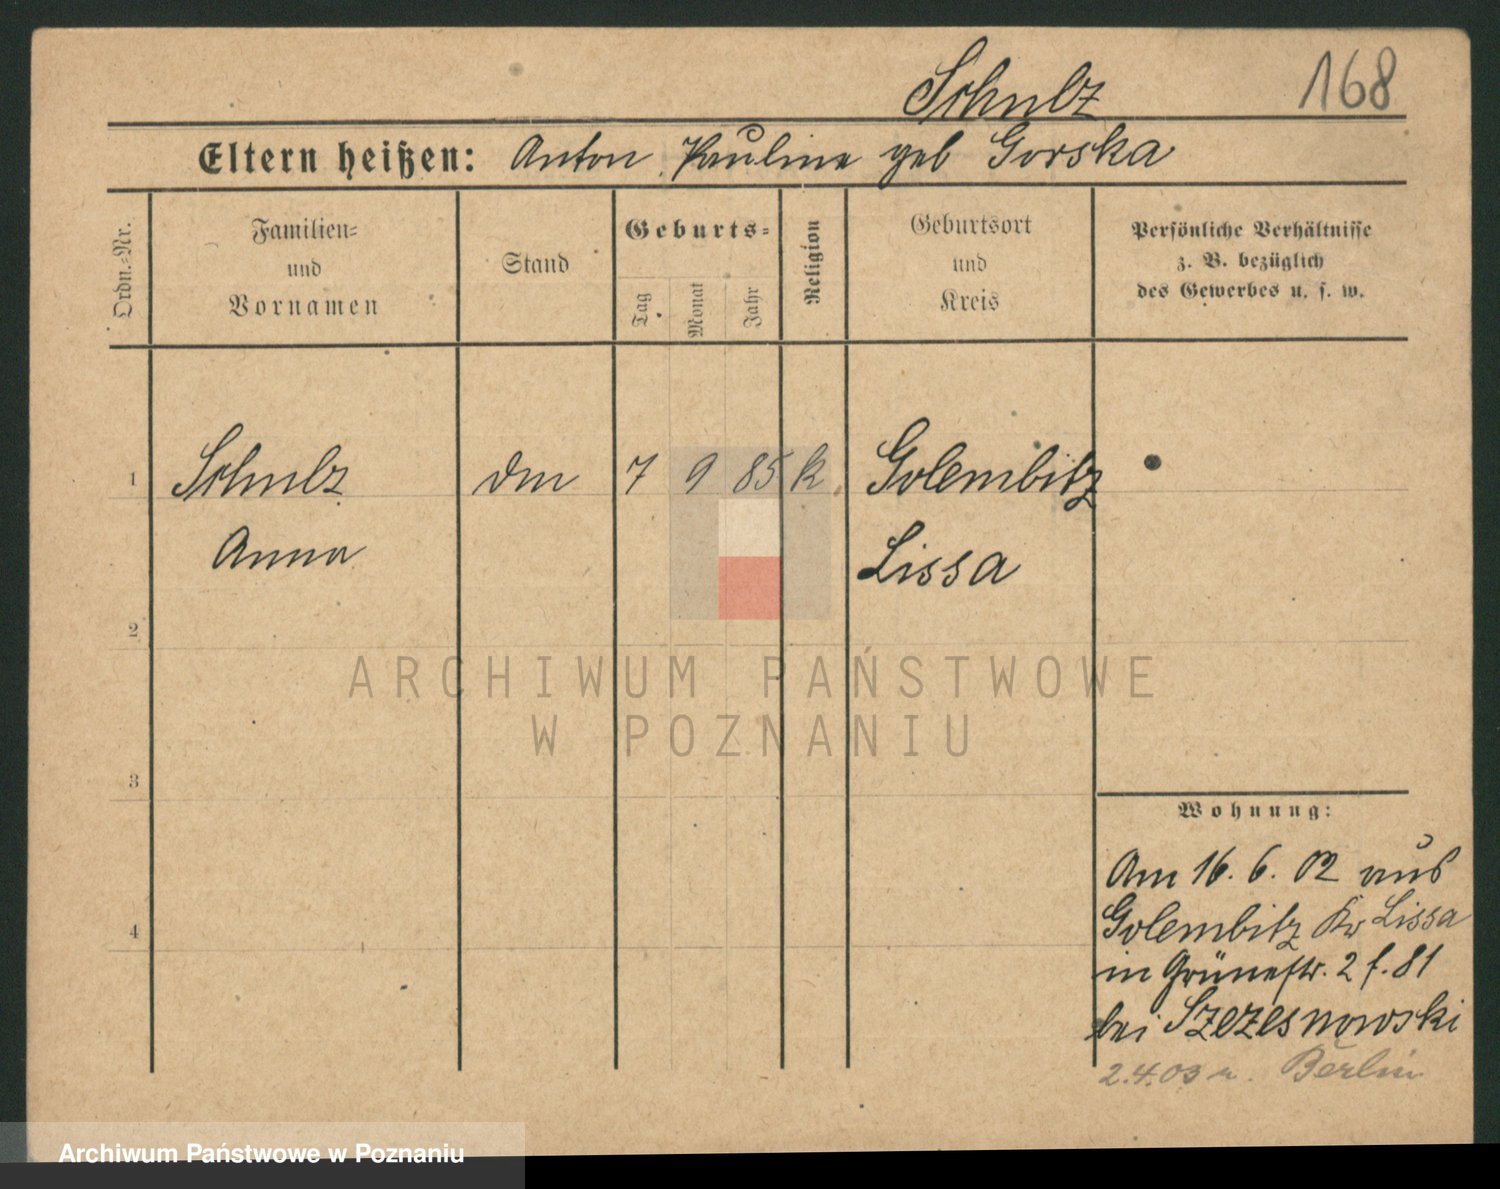 Schulz 168
Eltern heißen: Anton Pauline geb Gorska
Ordn.-Nr.
Familien-
und
Vornamen
Stand
Geburts-
Tag
Monat
Jahr
Religion
Geburtsort
und
Kreis
Persönliche Verhältnisse
z. B. bezüglich
des Gewerbes u. s. w.
1 Schulz 7 9 85 k Golembitz
Anna Lissa
2
ARCHIWUM PAŃSTWOWE
W POZNANIU
3
Wohnung:
Am 16. 6. 02 aus
4 Golembitz Kr Lissa
in Grünestr. 2 81
bei Szczesnowski
2.4.03 n. Berlin
Archiwum Państwowe w Poznaniu